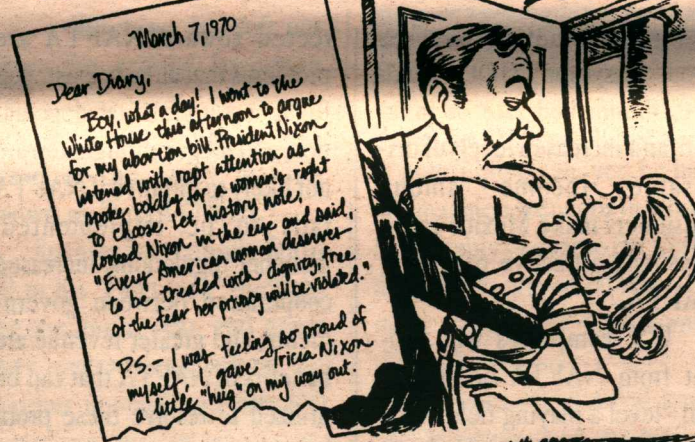 March 7, 1970
Dear Diary,
Boy, what a day! I went to the
White House this afternoon to argue
for my abortion bill. President Nixon
listened with rapt attention as I
spoke boldly for a woman's right
to choose. Let history note, I
looked Nixon in the eye and said,
"Every American woman deserves
to be treated with dignity, free
of the fear her privacy will be violated."
P.S.- I was feeling so proud of
myself, I gave Tricia Nixon
a little "hug" on my way out.